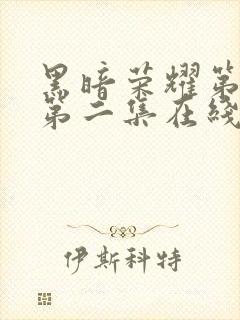 黑暗荣耀第
第二集在线
伊斯科特